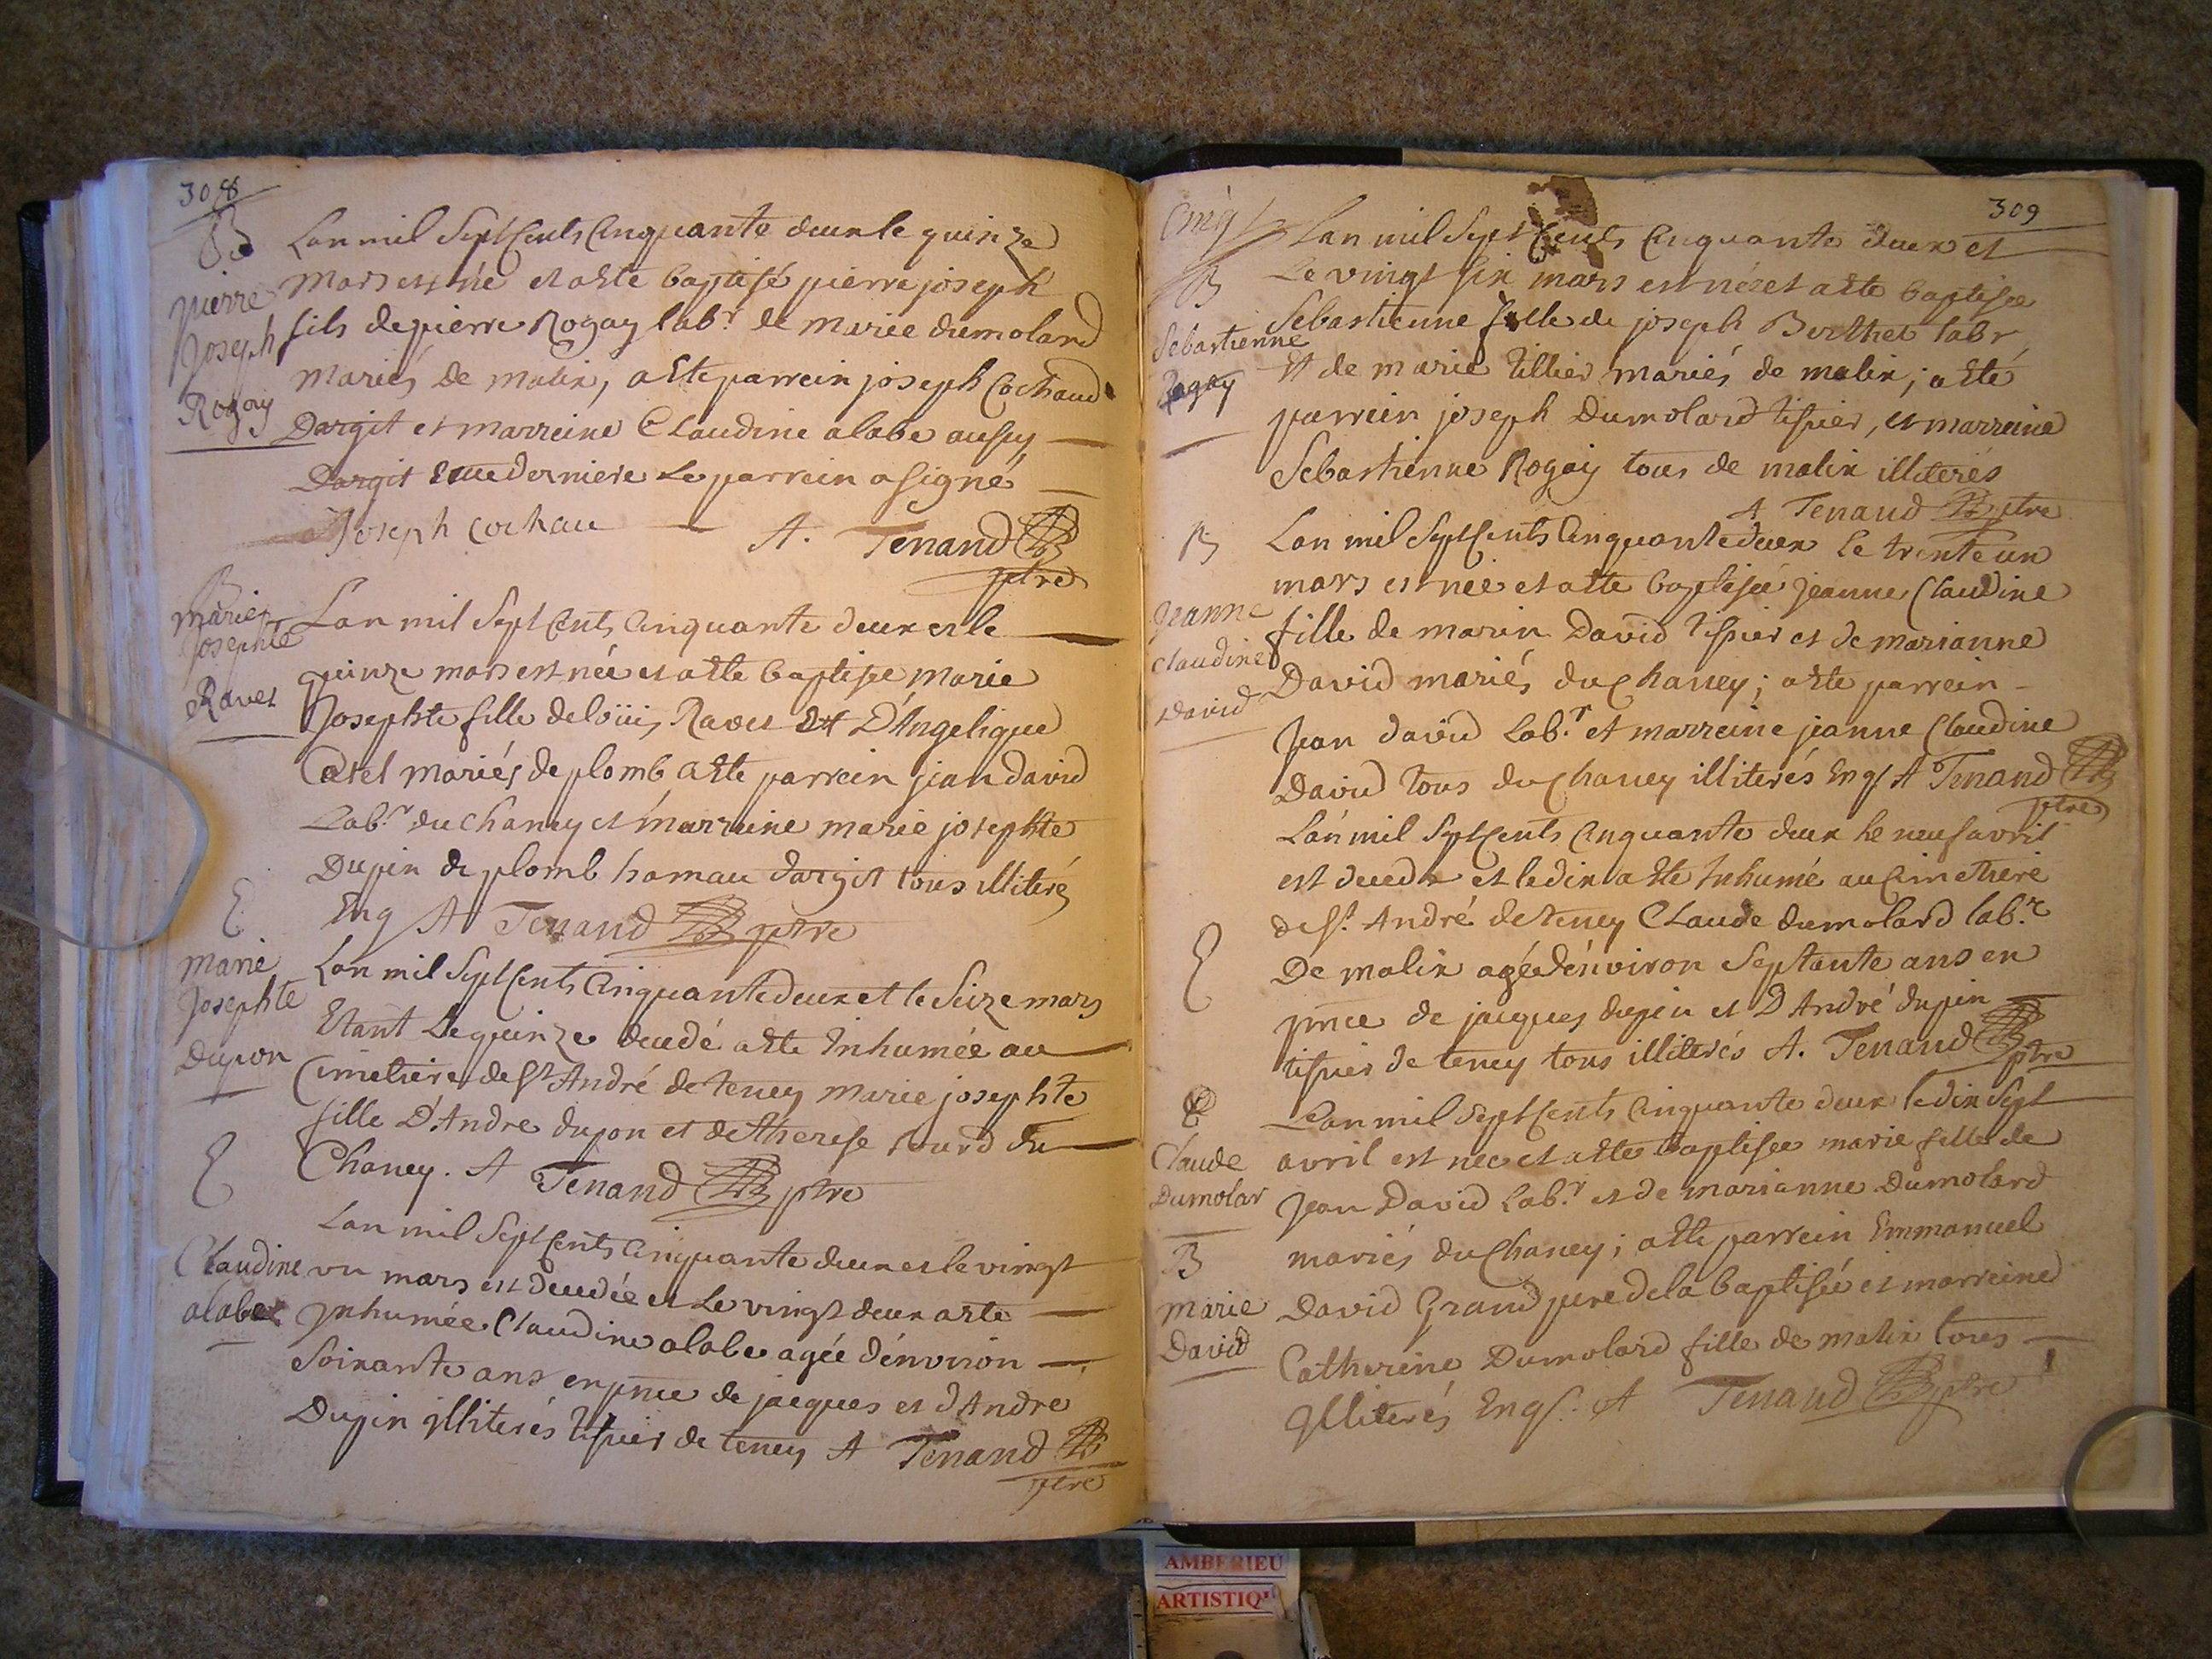 308
B
pierre
Joseph
Rogay
Lan mil Sept Cents Cinquante deux le quinze
Mars est né et a été baptisé pierre joseph
fils de pierre Rogay labr de marie dumolard
Mariés de malix, a été parrein joseph Cochaud
Dargit et marreine Claudine alabe aussy
Dargit derniere Le parrein a signé
Joseph cochau A. Tenand
ptre
Marie
Josephte
Ravet
Lan mil Sept Cents Cinquante deux et le
quinze mars est née et a été baptisée Marie
Josephte fille de Loüis Ravet Et D'Angelique
mariés de plomb a été parrein jean david
Labr du chaney et marreine marie josephte
Dupin de plomb hamau dargit tous illiterés
Enq A Tenand ptre
E
Marie
Josephte
Dupon
Lan mil Sept Cents Cinquante deux et le Seize mars
Etant Le quinze decedé a été Inhumée au
Cimetiere de St André de teney Marie josephte
fille D'Andre dupon et de therese tourd du
Chaney. A Tenand ptre
E
Claudine
alabe
Lan mil Sept Cents Cinquante deux et le vingt
un mars est decedée et Le vingt deux a été
Inhumée Claudine alabe agée d'environ
Soixante ans en pnce de jacques et d'Andre
Dupin illiterés tissier de teney A Tenand
ptre
309
B
Sebastienne
Rogay
Lan mil Sept Cents Cinquante deux et
Le vingt six mars est née et a été baptisée
Sebastienne fille de joseph Berthet labr
Et de marie tillier mariés de malix; a été
parrein joseph Dumolard tissier, et marreine
Sebastienne Rogay tous de malix illiterés
A Tenand ptre
B
Jeanne
Claudine
David
Lan mil Sept Cents Cinquante deux le trente un
mars est née et a été baptisée jeanne Claudine
fille de marin David tissier et de marianne
David mariés du Chaney; a été parrein
Jean david Labr et marreine jeanne Claudine
David tous du Chaney illiterés Enq A Tenand
ptre
E
Lan mil Sept Cents Cinquante deux le neuf avril
est decedé et le dix a été Inhumé au Cimetiere
de St André de teney Claude dumolard labr
De malix agé d'environ Septante ans en
pnce de jacques dupin et D'André dupin
tissier de teney tous illiterés A. Tenand
ptre
Claude
Dumolar
B
Marie
David
Lan mil Sept Cents Cinquante deux le dix Sept
avril est nee et a été baptisée marie fille de
Jean David Labr et de marianne Dumolard
mariés du Chaney; a été parrein Emmanuel
David Grand pere de la baptisée et marreine
Catherine Dumolard fille de malix tous
Illiterés Enq. A Tenand ptre
AMBERIEU
ARTISTIQ